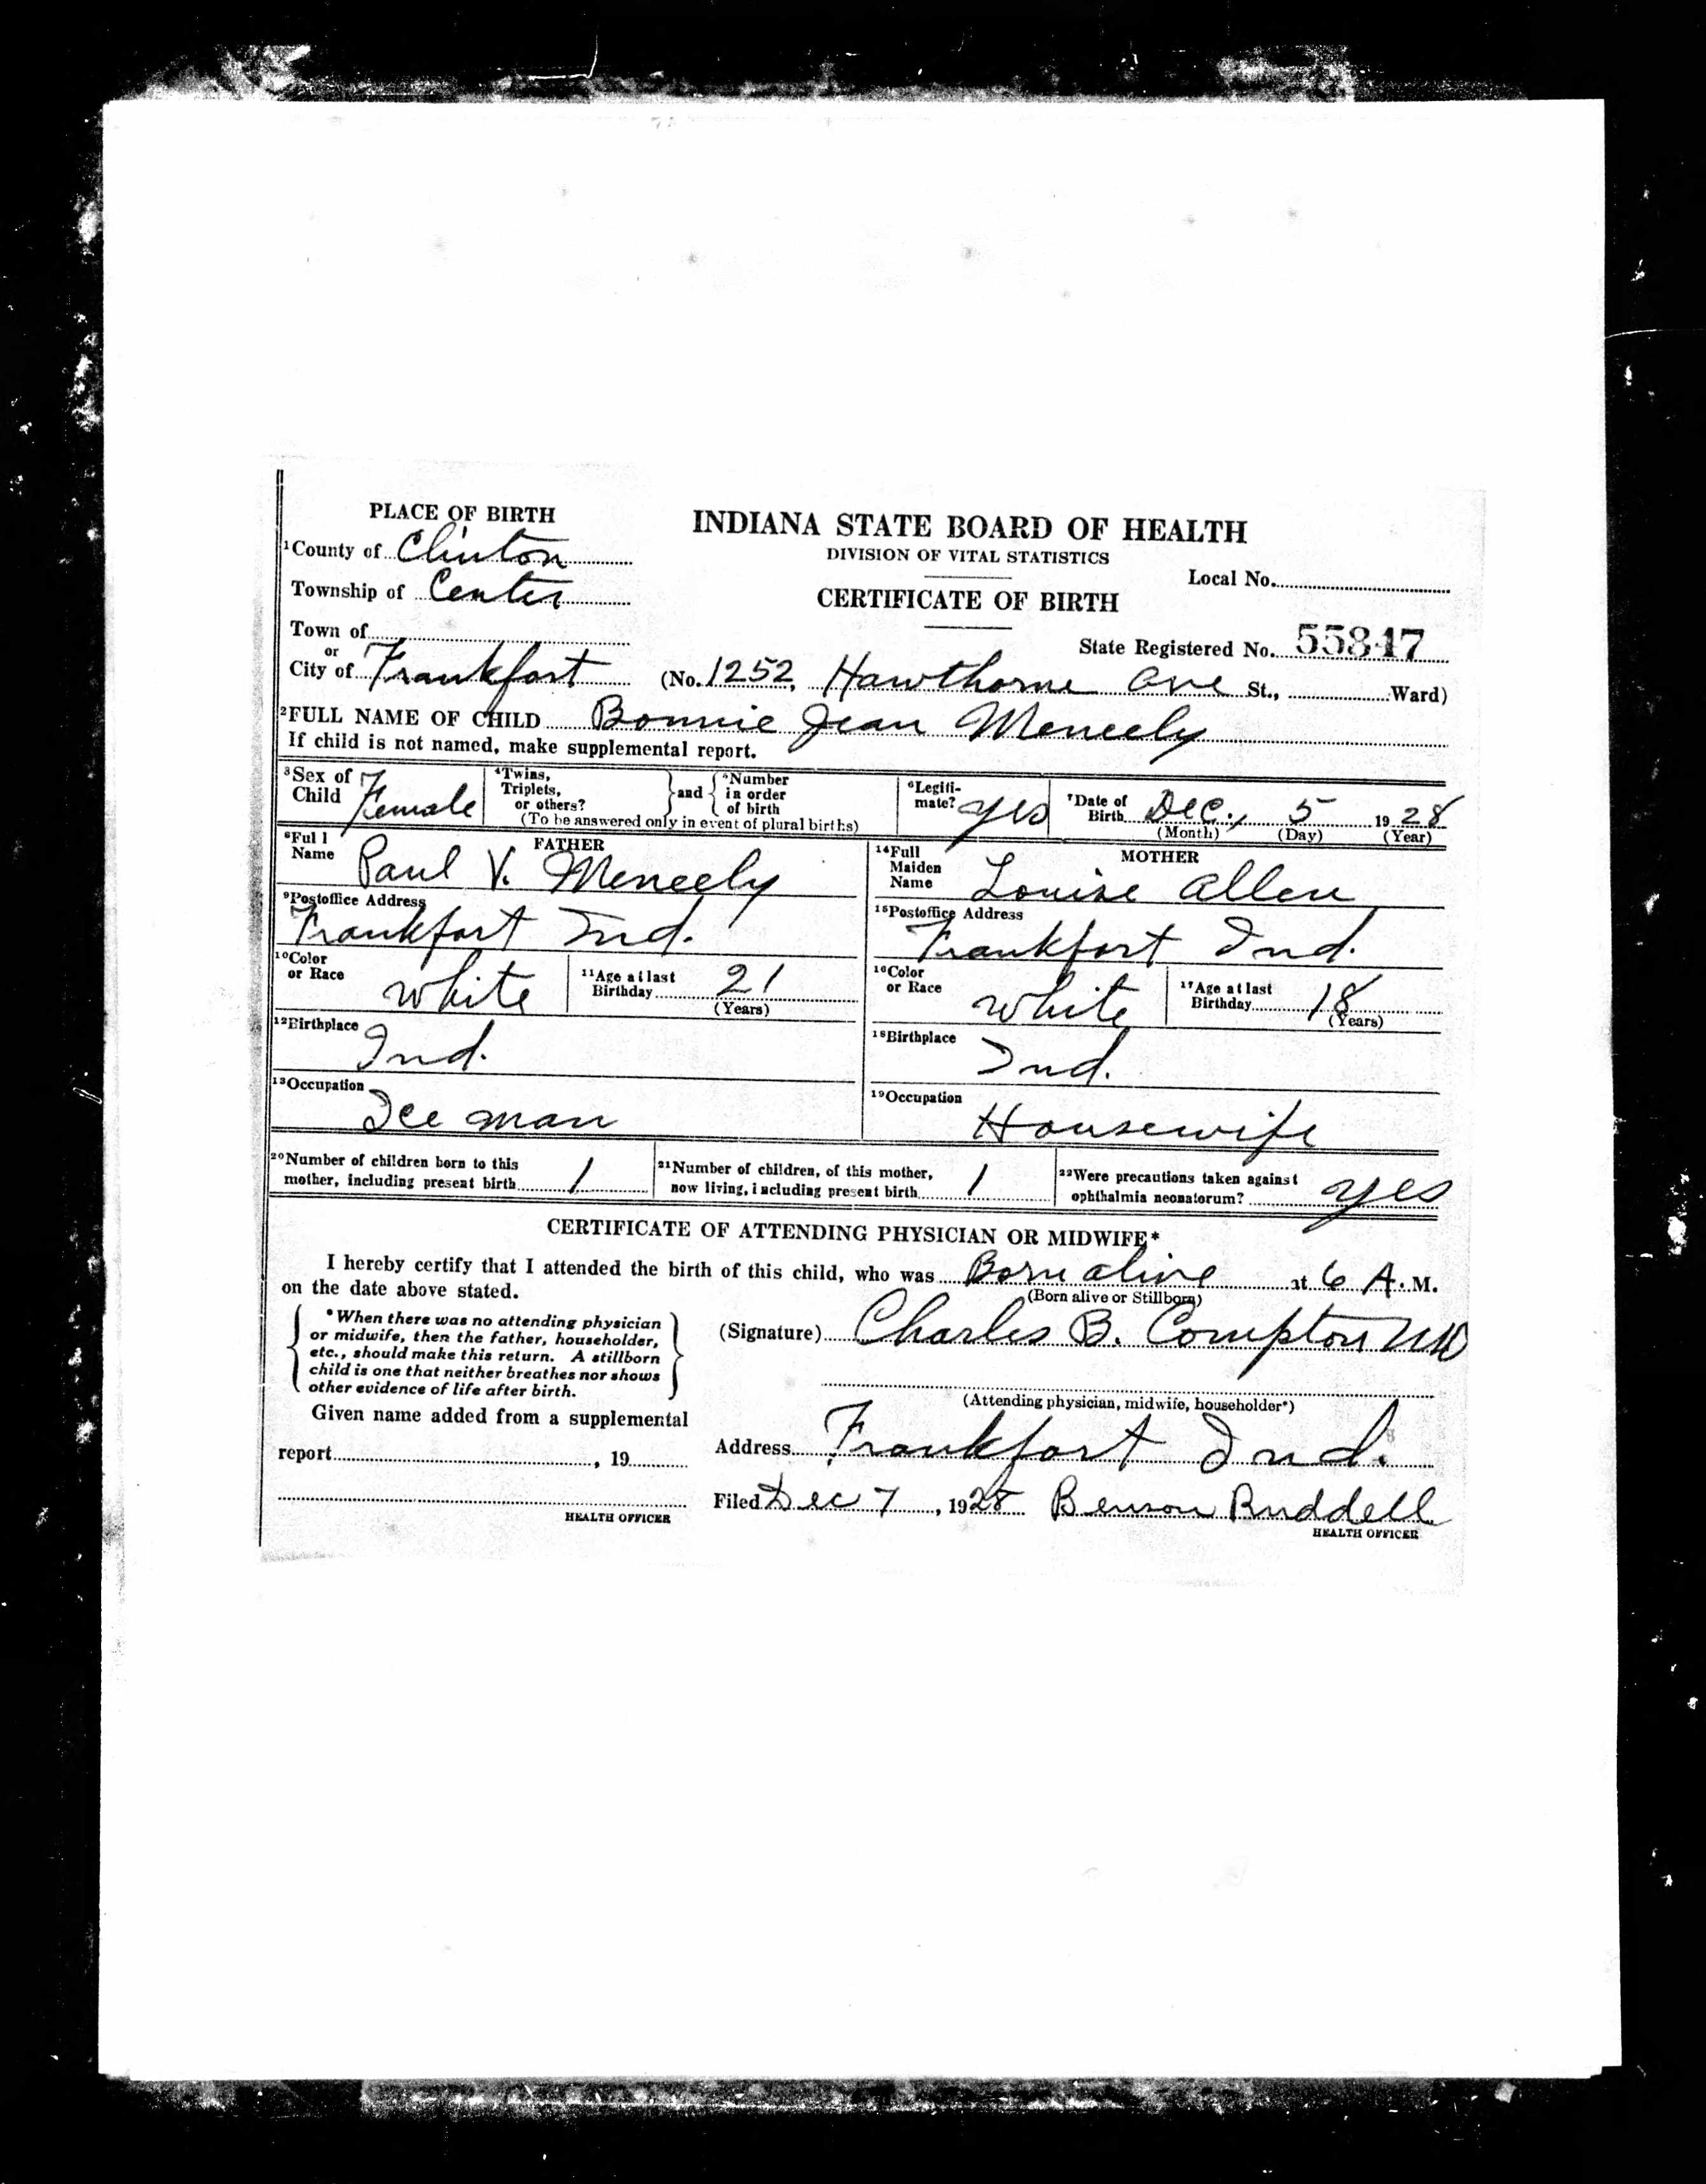 PLACE OF BIRTH
INDIANA STATE BOARD OF HEALTH
DIVISION OF VITAL STATISTICS
1County of Clinton
Local No.
Township of Center
CERTIFICATE OF BIRTH
Town of
or
State Registered No. 55847
City of Frankfort (No. 1252, Hawthorne Ave St., Ward)
2FULL NAME OF CHILD Bonnie Jean Meneely
If child is not named, make supplemental report.
3Sex of Child Female
4Twins, Triplets, or others? } and { 5Number in order of birth
(To be answered only in event of plural births)
6Legiti-mate? yes
7Date of Birth Dec., 5 1928
(Month) (Day) (Year)
FATHER
8Full Name Paul V. Meneely
MOTHER
14Full Maiden Name Louise Allen
9Postoffice Address
Frankfort Ind.
15Postoffice Address
Frankfort Ind.
10Color or Race white
11Age at last Birthday 21
(Years)
16Color or Race white
17Age at last Birthday 18
(Years)
12Birthplace
Ind.
18Birthplace
Ind.
13Occupation
Ice man
19Occupation
Housewife
20Number of children born to this mother, including present birth 1
21Number of children, of this mother, now living, including present birth 1
22Were precautions taken against ophthalmia neonatorum? yes
CERTIFICATE OF ATTENDING PHYSICIAN OR MIDWIFE*
I hereby certify that I attended the birth of this child, who was Born alive at 6 A. M.
(Born alive or Stillborn)
on the date above stated.
*When there was no attending physician
or midwife, then the father, householder,
etc., should make this return. A stillborn
child is one that neither breathes nor shows
other evidence of life after birth.
(Signature) Charles B. Compton MD
(Attending physician, midwife, householder*)
Given name added from a supplemental
report , 19
Address Frankfort Ind.
HEALTH OFFICER
Filed Dec 7, 1928 Benson Ruddell
HEALTH OFFICER